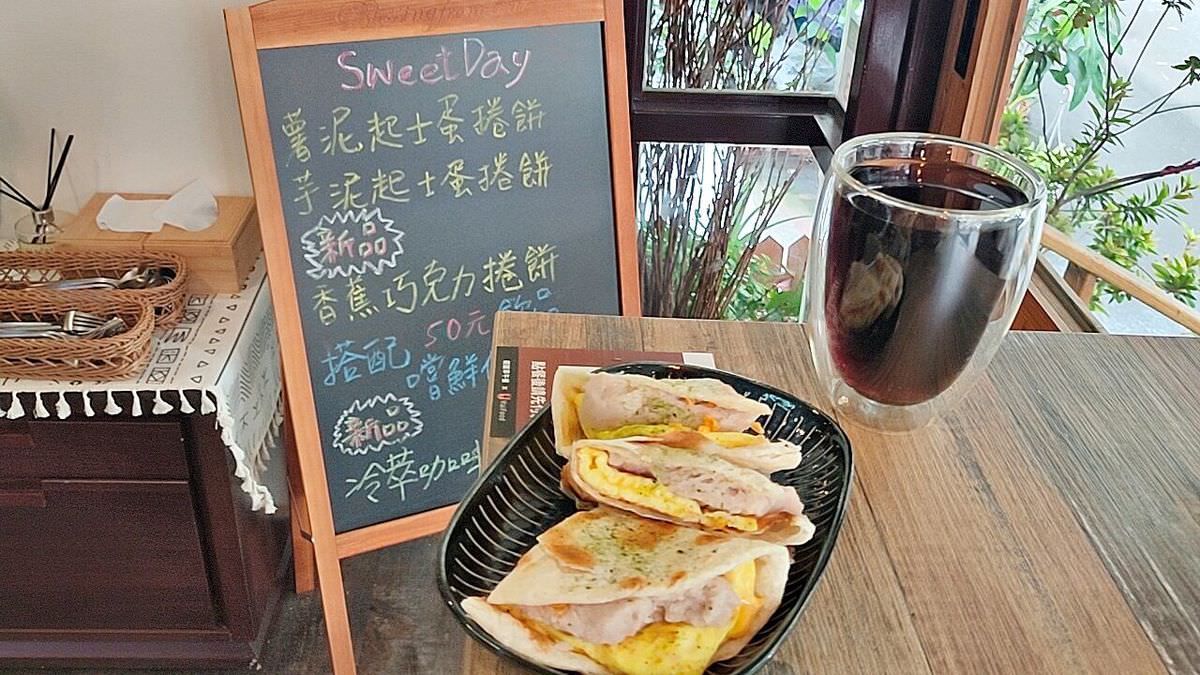 SweetDay
薯泥起士蛋捲餅
芋泥起士蛋捲餅
新品
香蕉巧克力捲餅
搭配 50元飲品
嚐鮮
新品
冷萃咖啡
點餐後請先